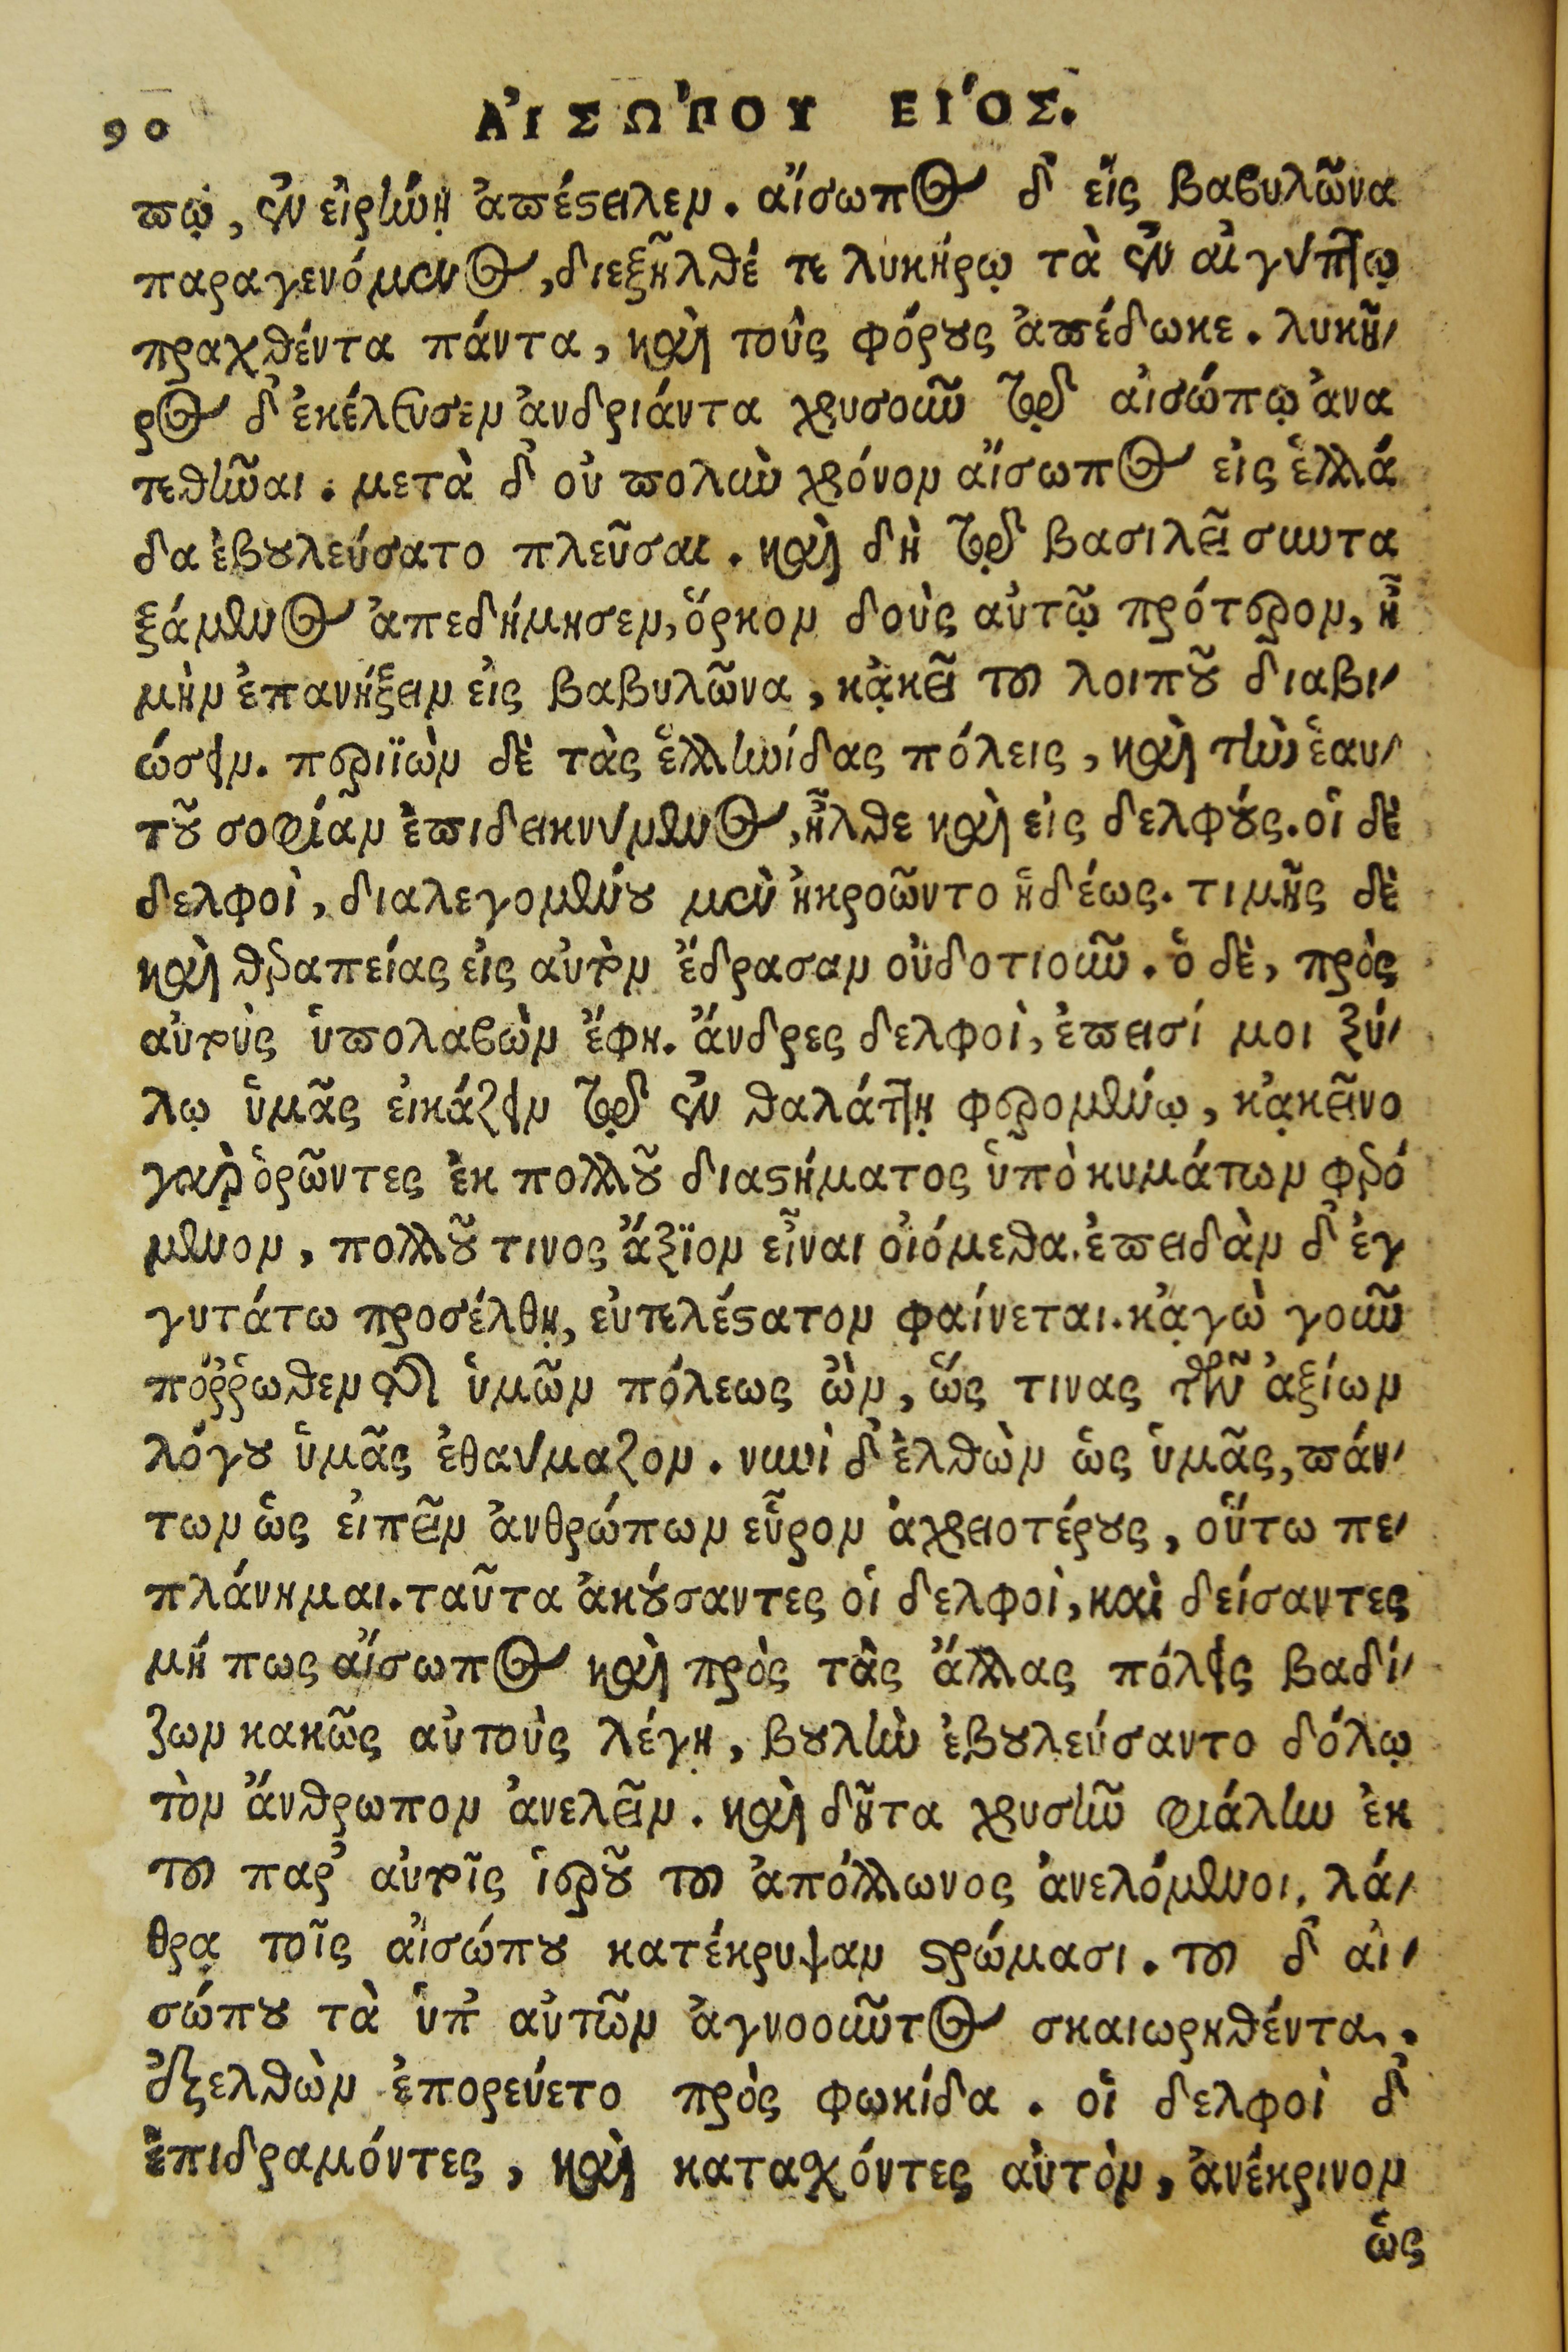 90
ΑἸΣΩΠΟΥ ΒΙΌΣ.
πῳ, ἐν εἰρήνῃ ἀπέστειλεν. αἴσωπος δ' εἰς βαβυλῶνα
παραγενόμενος, διεξῆλθέ τε λυκήρῳ τὰ ἐν αἰγύπτῳ
πραχθέντα πάντα, καὶ τοὺς φόρους ἀπέδωκε. λυκῆ-
ρος δ' ἐκέλευσεν ἀνδριάντα χρυσοῦν τῷ αἰσώπῳ ἀνα
τεθῆναι. μετὰ δ' οὐ πολὺν χρόνον αἴσωπος εἰς ἑλλά
δα ἐβουλεύσατο πλεῦσαι. καὶ δὴ τῷ βασιλεῖ συντα
ξάμενος ἀπεδήμησεν, ὅρκον δοὺς αὐτῷ πρότερον, ἦ
μὴν ἐπανήξειν εἰς βαβυλῶνα, κᾀκεῖ τοῦ λοιποῦ διαβι-
ώσειν. περιϊὼν δὲ τὰς ἑλληνίδας πόλεις, καὶ τὴν ἑαυ-
τοῦ σοφίαν ἐπιδεικνύμενος, ἦλθε καὶ εἰς δελφούς. οἱ δὲ
δελφοὶ, διαλεγομένου μὲν ἠκροῶντο ἡδέως. τιμῆς δὲ
καὶ θεραπείας εἰς αὐτὸν ἔδρασαν οὐδοτιοῦν. ὁ δὲ, πρὸς
αὐτοὺς ὑπολαβὼν ἔφη. ἄνδρες δελφοὶ, ἔπεισί μοι ξύ-
λῳ ὑμᾶς εἰκάζειν τῷ ἐν θαλάττῃ φερομένῳ, κᾀκεῖνο
γὰρ ὁρῶντες ἐκ πολλοῦ διαστήματος ὑπὸ κυμάτων φερό
μενον, πολλοῦ τινος ἄξϊον εἶναι οἰόμεθα. ἐπειδὰν δ' ἐγ
γυτάτω προσέλθῃ, εὐτελέστατον φαίνεται. κᾀγὼ γοῦν
πόῤῥωθεν τῆς ὑμῶν πόλεως ὢν, ὥς τινας τῶν ἀξίων
λόγου ὑμᾶς ἐθαύμαζον. νυνὶ δ' ἐλθὼν ὡς ὑμᾶς, πάν-
των ὡς εἰπεῖν ἀνθρώπων εὗρον ἀχρειοτέρους, οὕτω πε-
πλάνημαι. ταῦτα ἀκούσαντες οἱ δελφοὶ, καὶ δείσαντες
μή πως αἴσωπος καὶ πρὸς τὰς ἄλλας πόλεις βαδί-
ζων κακῶς αὐτοὺς λέγῃ, βουλὴν ἐβουλεύσαντο δόλῳ
τὸν ἄνθρωπον ἀνελεῖν. καὶ δῆτα χρυσῆν φιάλην ἐκ
τοῦ παρ' αὐτοῖς ἱεροῦ τοῦ ἀπόλλωνος ἀνελόμενοι, λά-
θρᾳ τοῖς αἰσώπου κατέκρυψαν στρώμασι. τοῦ δ' αἰ-
σώπου τὰ ὑπ' αὐτῶν ἀγνοοῦντος σκαιωρηθέντα.
ἐξελθὼν ἐπορεύετο πρὸς φωκίδα. οἱ δελφοὶ δ'
ἐπιδραμόντες, καὶ κατασχόντες αὐτὸν, ἀνέκρινον
ὡς